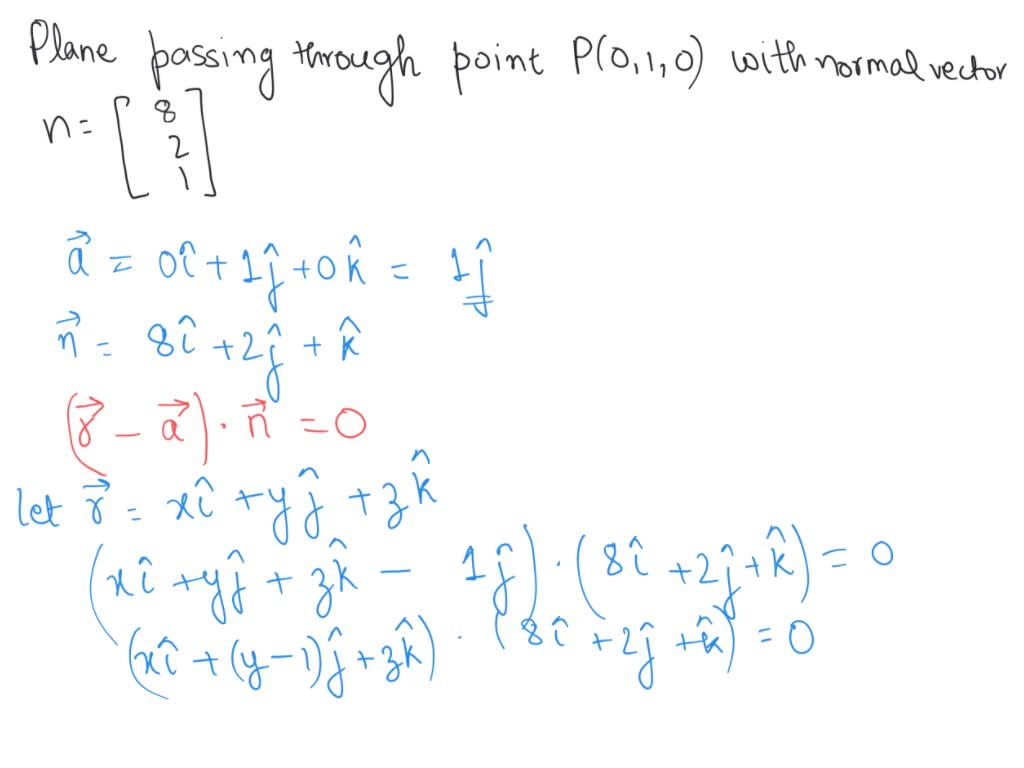 Plane passing through point P(0,1,0) with normal vector
n = [8 2 1]
a⃗ = 0î + 1ĵ + 0k̂ = 1ĵ
n⃗ = 8î + 2ĵ + k̂
(r⃗ - a⃗) · n⃗ = 0
let r⃗ = xî + yĵ + zk̂
(xî + yĵ + zk̂ - 1ĵ) · (8î + 2ĵ + k̂) = 0
(xî + (y-1)ĵ + zk̂) · (8î + 2ĵ + k̂) = 0